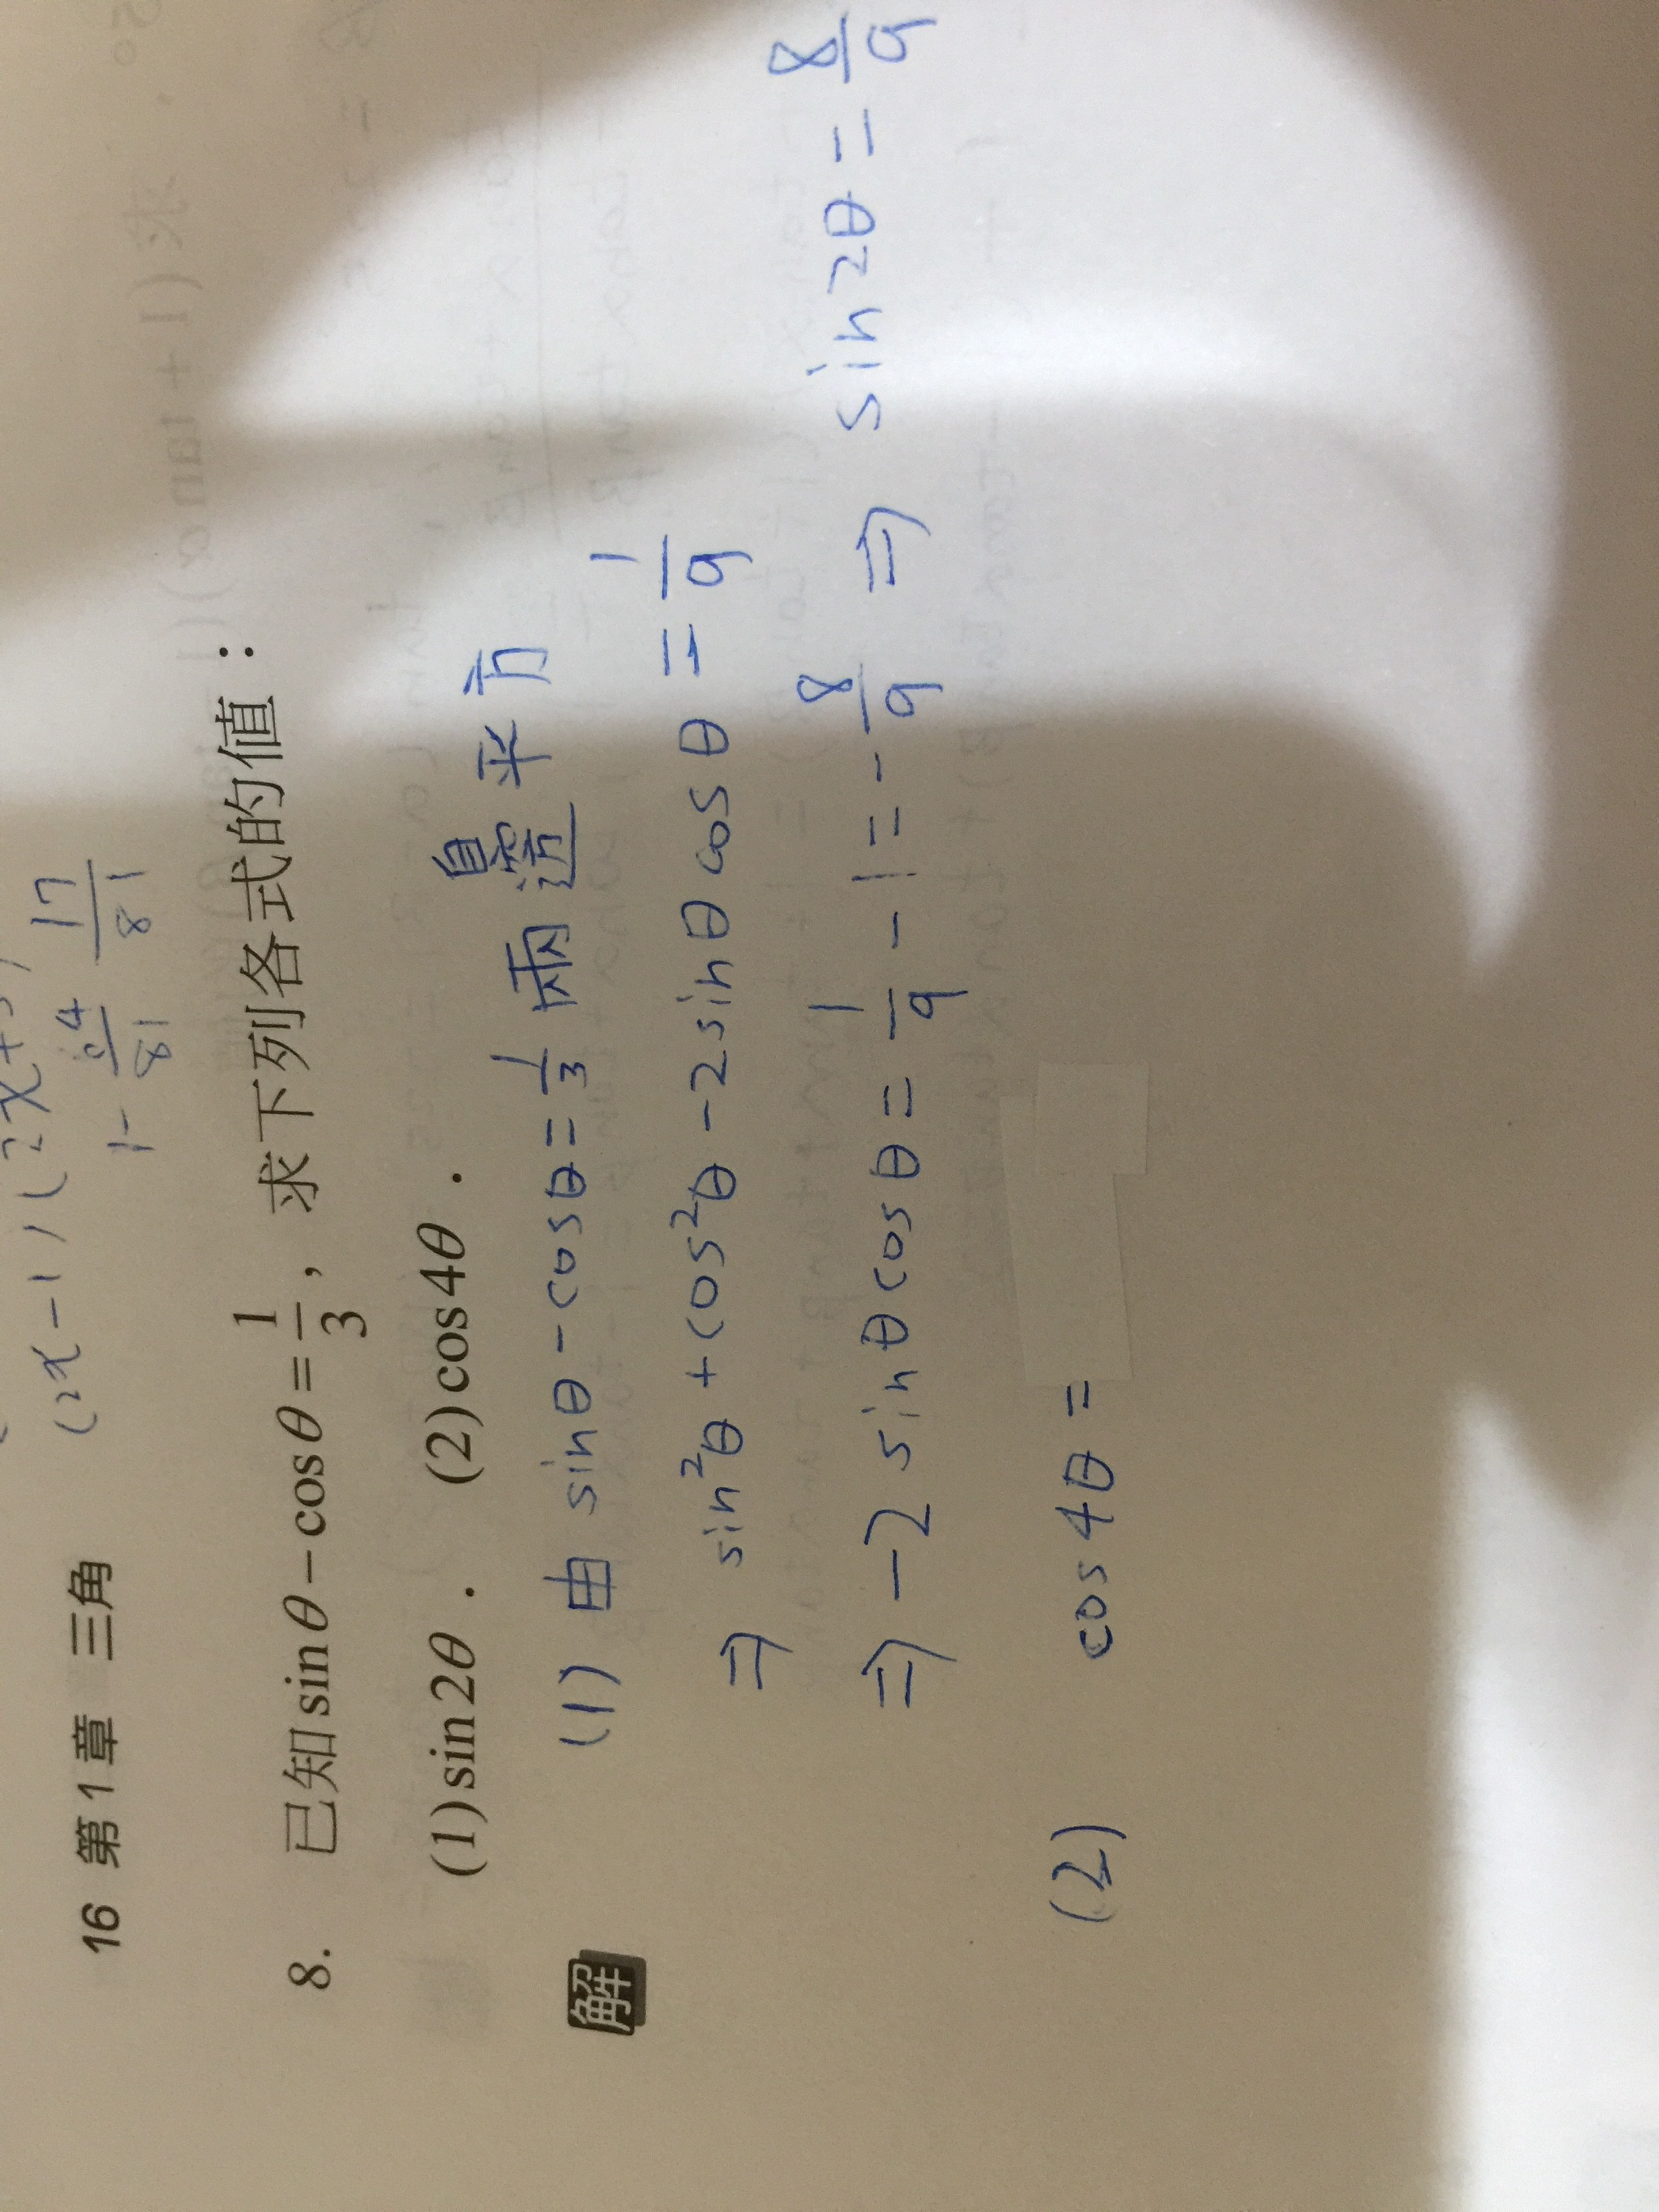 (2x-1)(2x+3)
1- 64/81 17/81
16 第1章 三角
8. 已知 sinθ-cosθ=1/3, 求下列各式的值：
(1) sin2θ. (2) cos4θ.
解 (1) 由 sinθ-cosθ=1/3 兩邊平方
⇒ sin²θ+cos²θ-2sinθcosθ=1/9
⇒ -2sinθcosθ=1/9-1=-8/9 ⇒ sin2θ=8/9
(2) cos4θ=